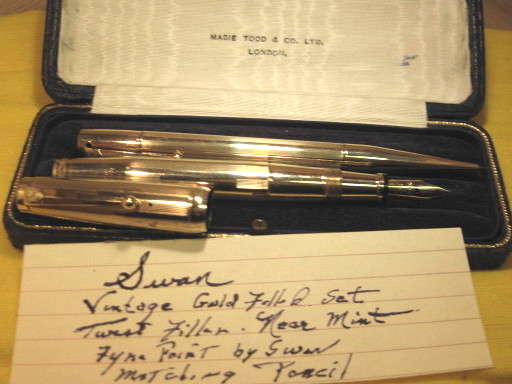 MABIE TODD & CO. LTD.
LONDON.
Swan
Vintage Gold Filled Set
Twist Filler. Near Mint
Fyne Point by Swan
Matching Pencil